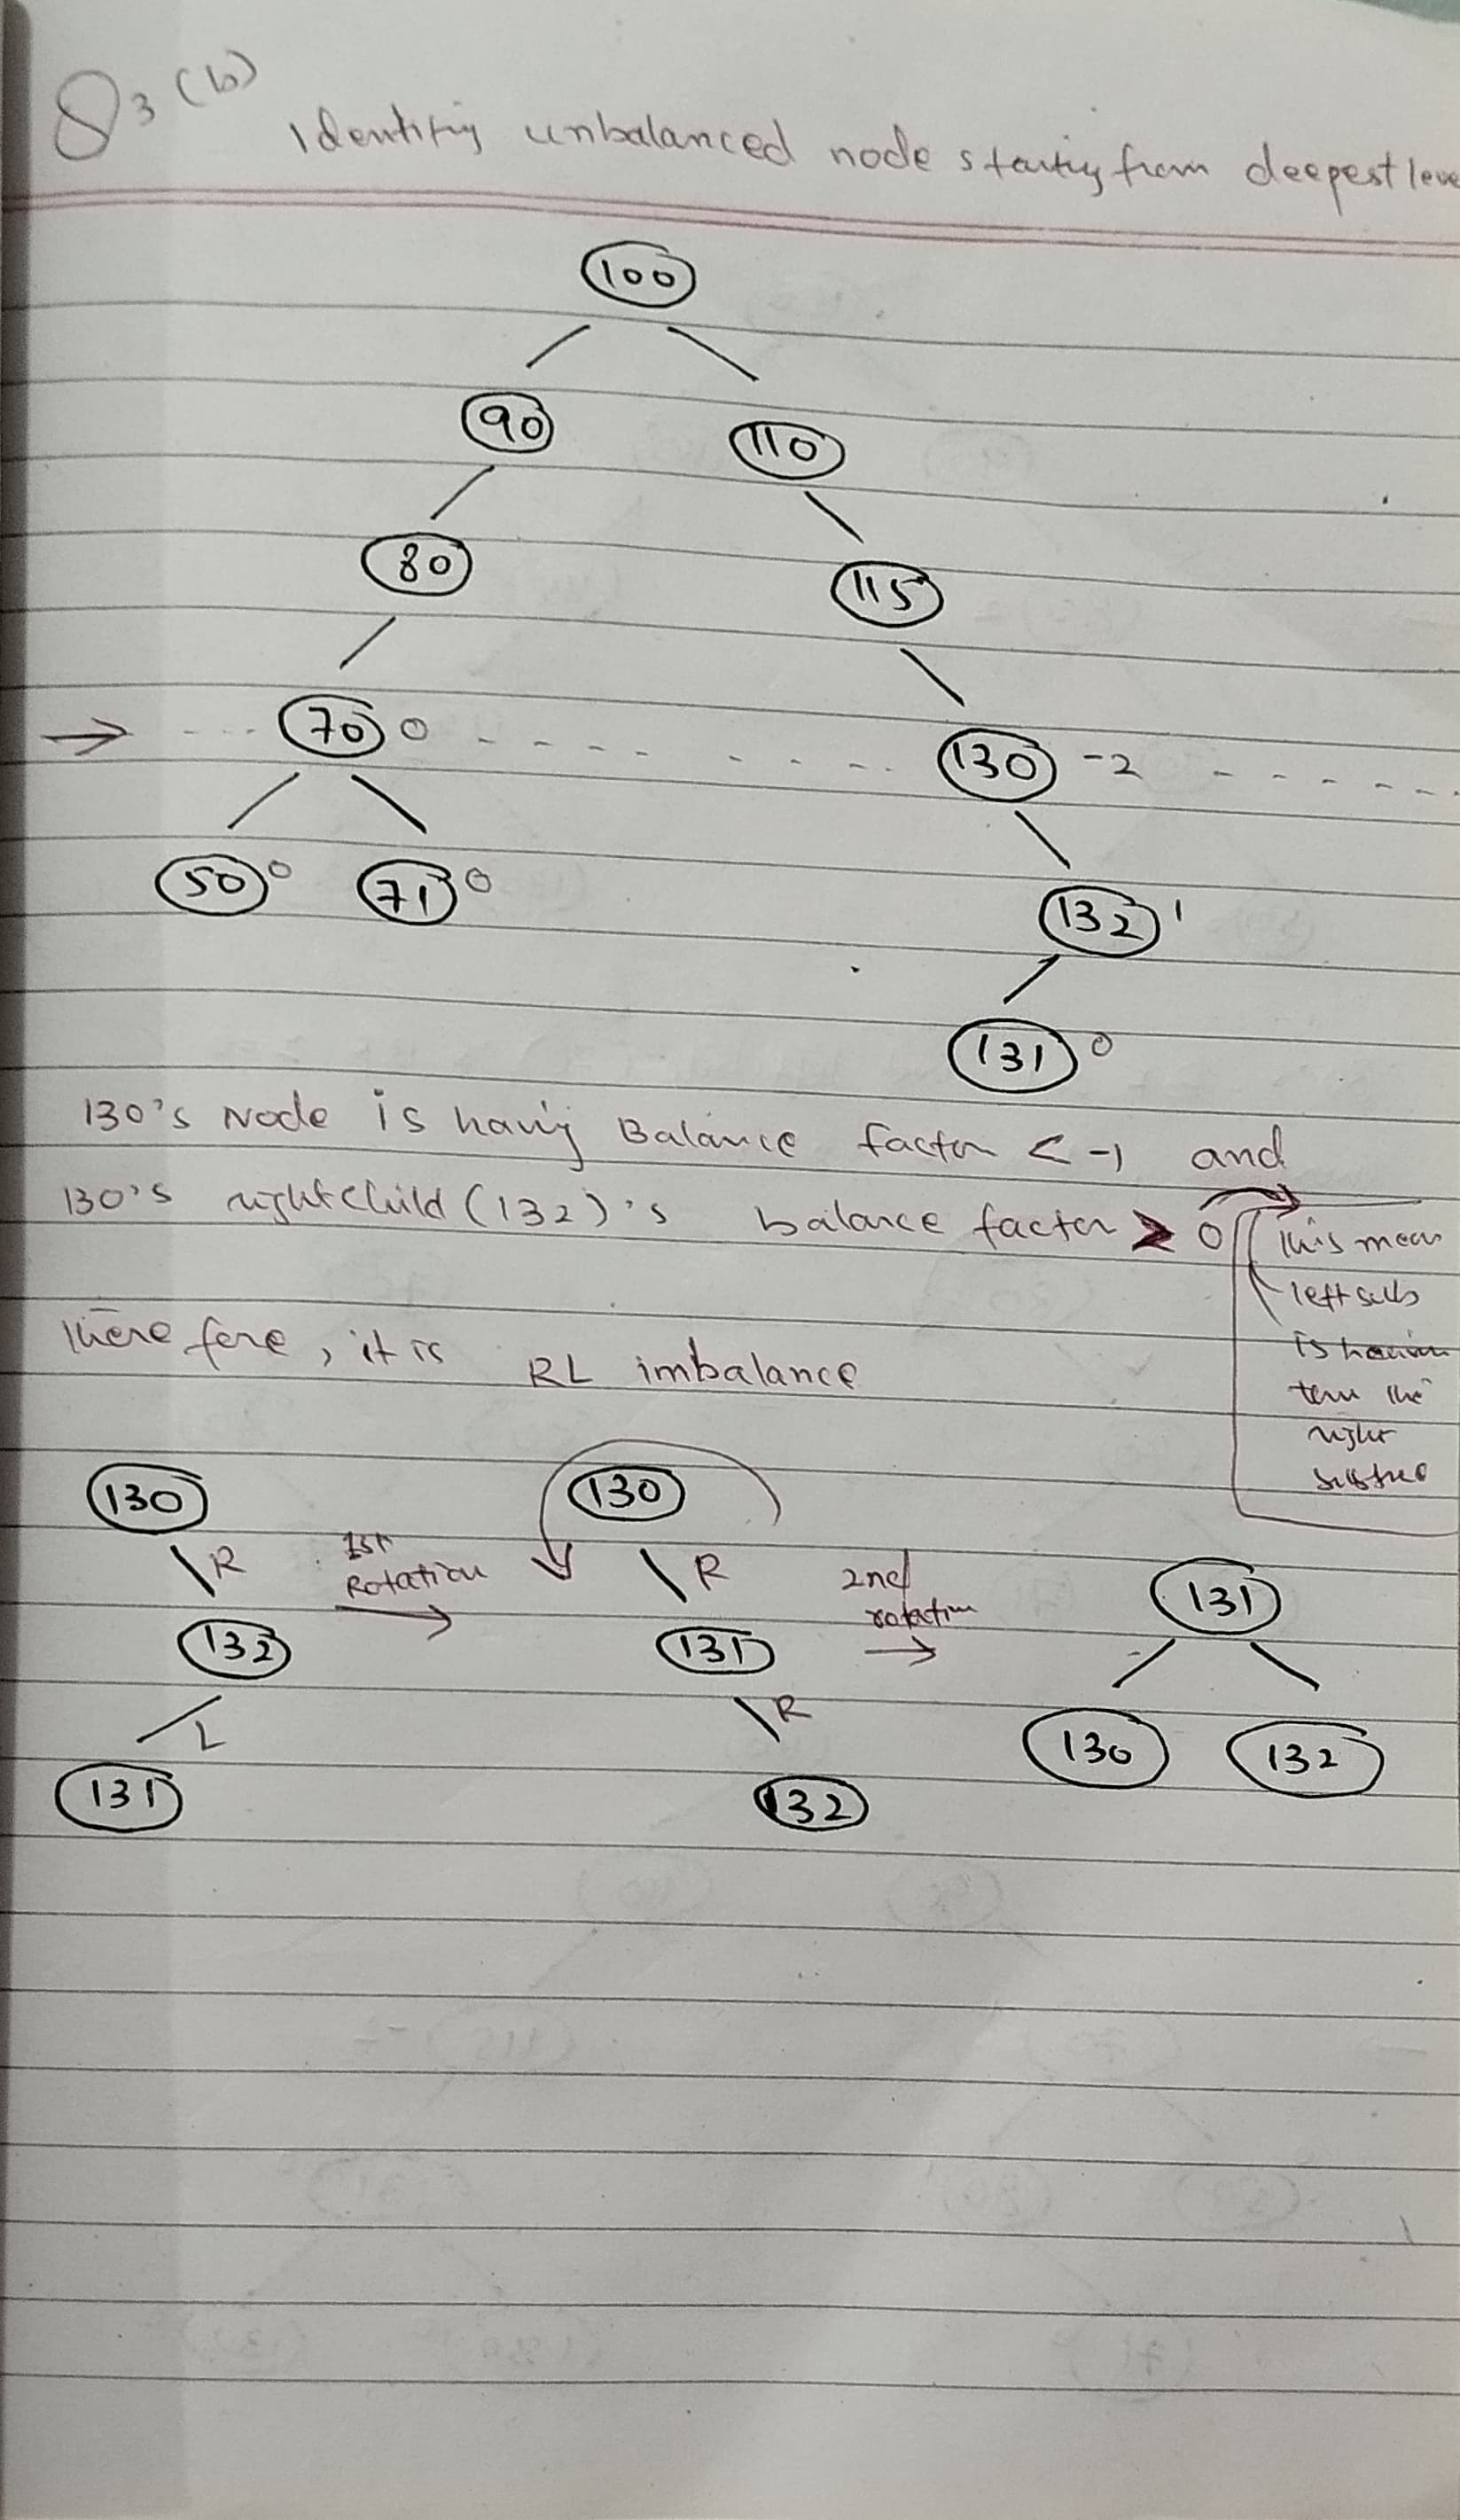 Q3 (b)
Identifiy unbalanced node starting from deepest leve
100
90 110
80 115
70 0 130 -2
50 0 71 0 132 1
131 0
130's Node is having Balance factor < -1 and
130's rightchild (132)'s balance factor > 0 (This mean
left sub
is
the
right
subtree
Therefore, it is RL imbalance
130 130
R 1st Rotation R 2nd rotation 131
132 131
L R 130 132
131 132